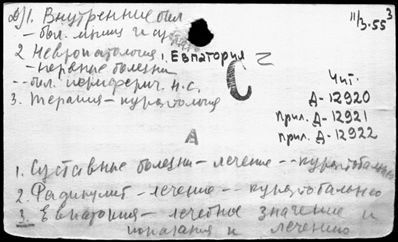 Д)1. Внутренние бол
- бол. мышц и су
11/3.55³
2 Невропатология 1. Евпатория
- нервные болезни
-- бол. периферич. н.с.
3. Терапия - курортология
С
2
Чит.
Д-12920
Прил. Д-12921
Прил. Д-12922
А
1. Суставные болезни - лечение -- курортобальнео
2. Радикулит - лечение -- курортобальнео
3. Евпатория - лечебное значение и
показания к лечению